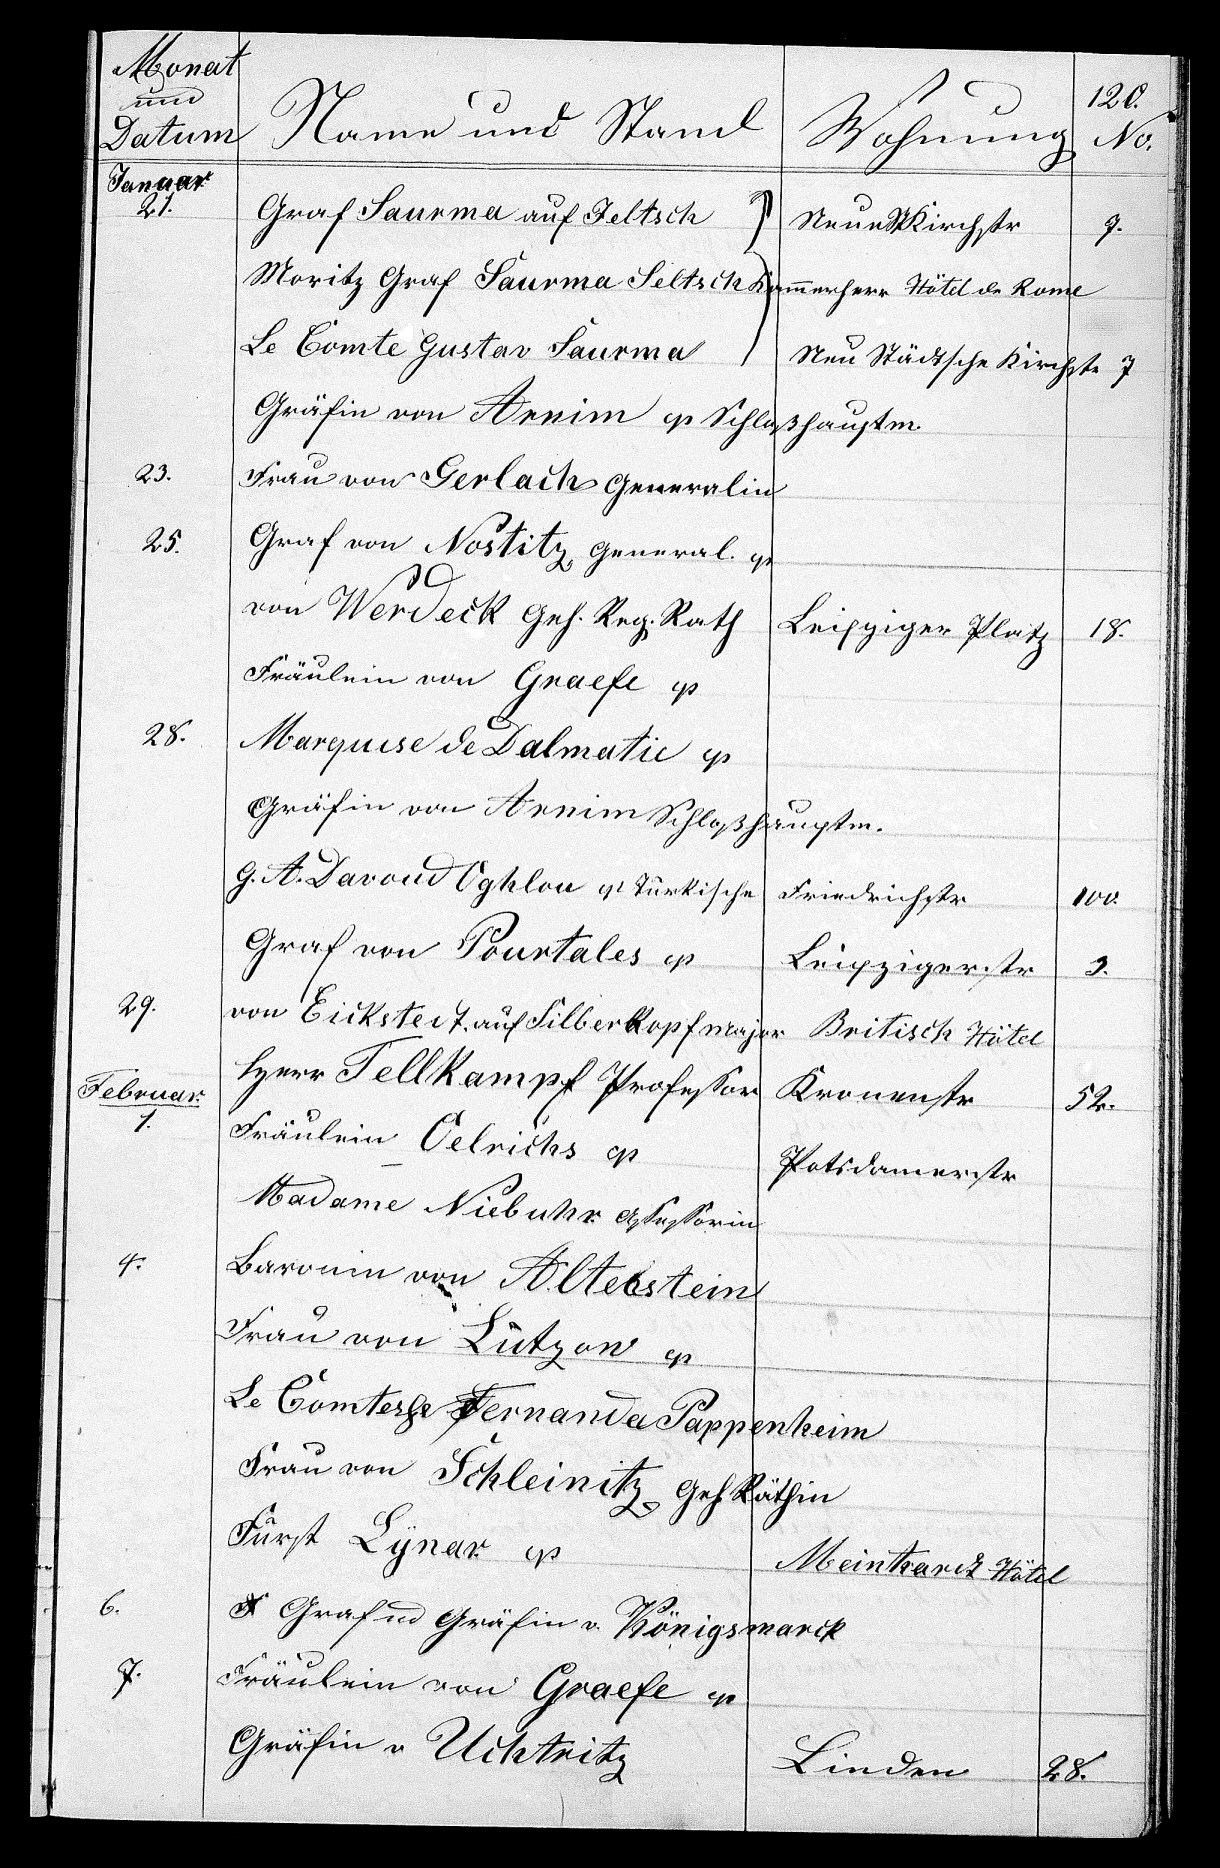 Monat und Datum Name und Stand Wohnung 120. No.
Januar
21. Graf Saurma auf Jeltsch Neue Kirchstr 7.
Moritz Graf Saurma Jeltsch Kammerherr Hôtel de Rome
Le Comte Gustav Saurma Neu Städtsche Kirchstr 7
Gräfin von Arnim Schloßhauptm.
23. Frau von Gerlach Generalin
25. Graf von Nostitz, General.
von Werdeck Geh. Reg. Rath Leipziger Platz 18.
Fräulein von Graefe
28. Marquise de Dalmatie
Gräfin von Arnim Schloßhauptm.
G. A. Davoud Oghlou Türkische Friedrichstr 100.
Graf von Pourtales Leipzigerstr 3.
29. von Eickstedt auf Silberkopf major Britisch Hôtel
Herr Tellkampf Professor Kronenstr 52.
Februar.
1. Fräulein Oelrichs Potsdamerstr
Madame Niebuhr Assessorin
4. Baronin von Altenstein
Frau von Lützow
Le Comtesse Fernanda Pappenheim
Frau von Schleinitz, Geh Räthin
Fürst Lÿnar Meinhardt Hôtel
6. Graf und Gräfin v. Königsmarck
7. Fräulein von Graefe
Gräfin v Uchtritz Linden 28.